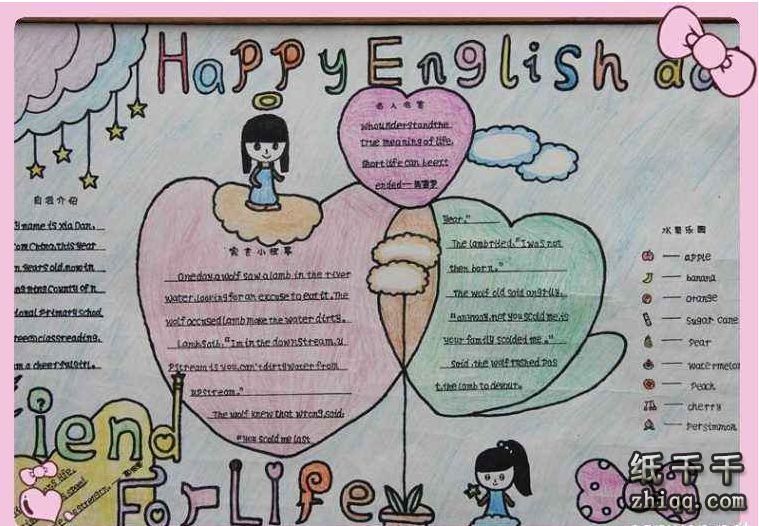 Happy English da
名人名言
who understand the
true meaning of life,
short life can be ext
ended—
自我介绍
y name is xia Dan,
om China. this year
n years old. now in
ng ning County of n
ional primary school
reen class reading,
m a cheerful girl.
寓言小故事
One day, a wolf saw a lamb in the river
water, looking for an excuse to eat it. The
wolf accused lamb make the water dirty.
Lamb sait, "Im in the downstream, y
pstream is you, can't dirty water from
upstream."
The wolf knew that wrong, said:
"you scold me last
Year."
The lamb ried, "I was not
then born."
The wolf old said angrily,
"anyway, not you scold me, is
your family scolded me."
Said, the wolf rushed pas
t, the lamb to devour.
水果乐园
apple
banana
orange
sugar cane
pear
watermelon
peach
cherry
persimmon
iend
For Life
纸千千
zhiqq.com